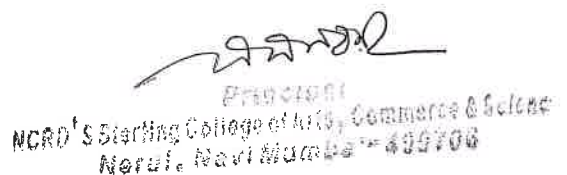 Principal
NCRD'S Sterling College of Arts, Commerce & Science
Nerul, Navi Mumbai - 400706